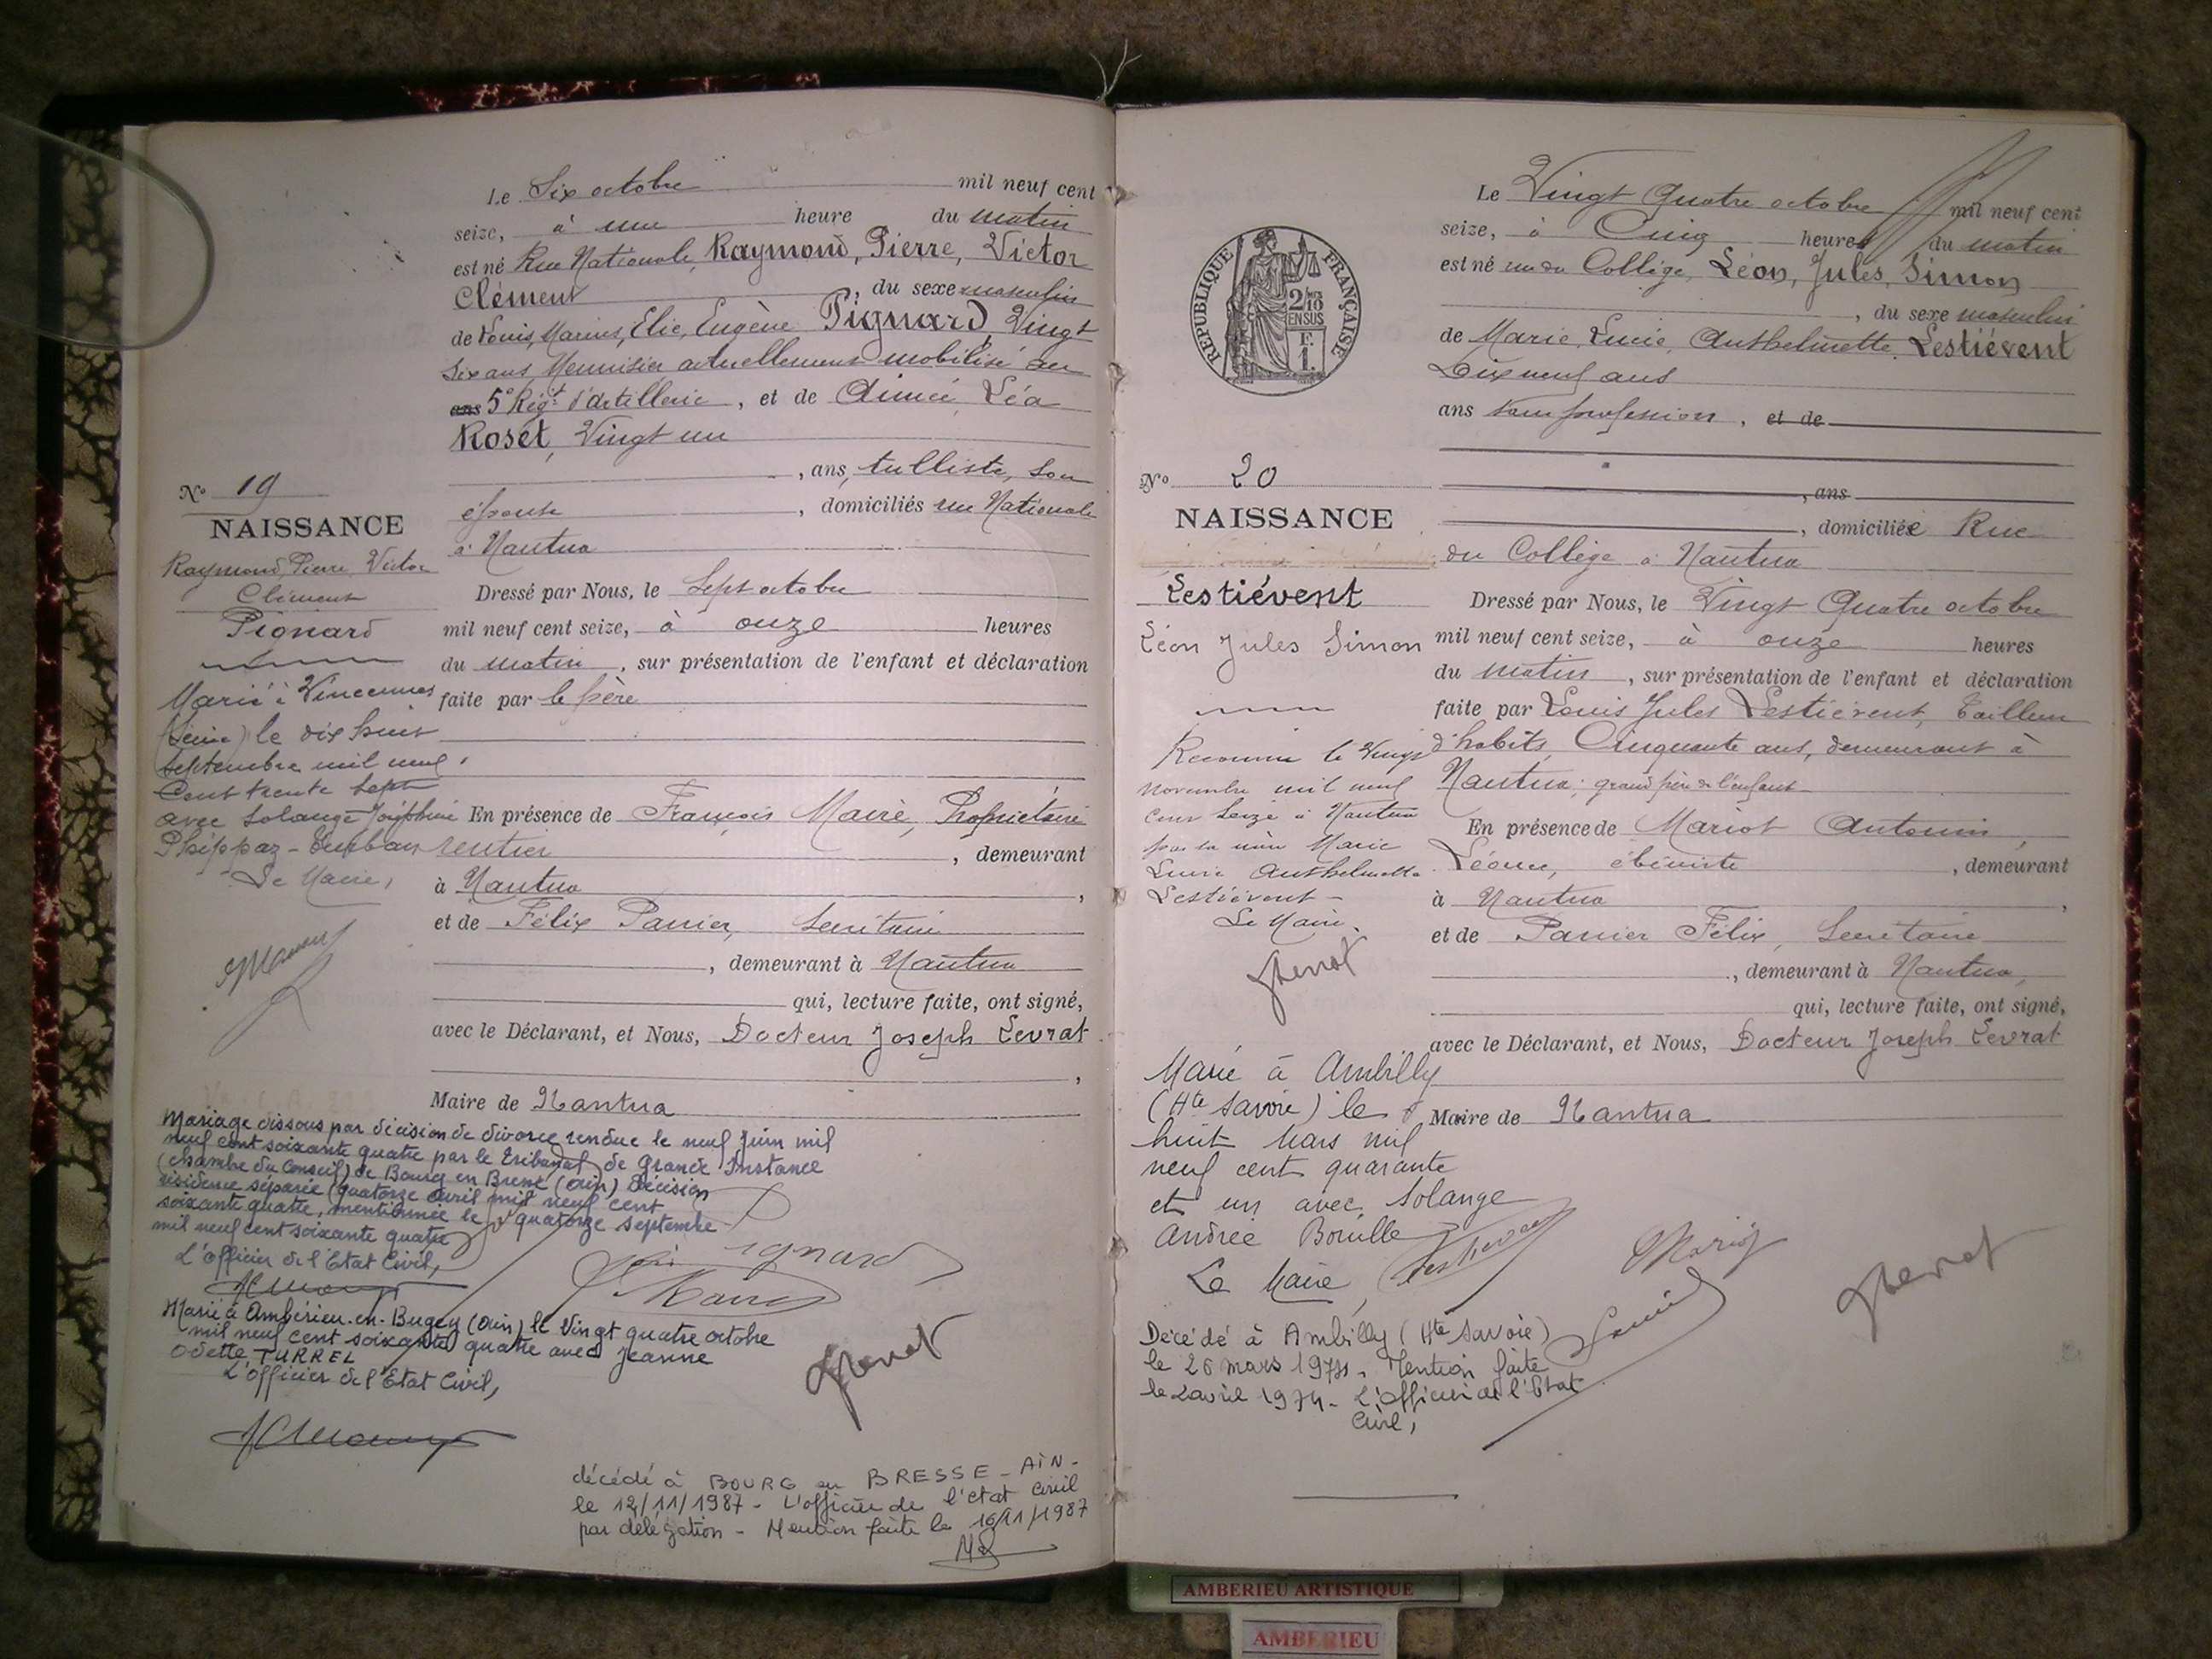 Le Six octobre mil neuf cent
seize, à une heure du matin
est né Rue Nationale, Raymond, Pierre, Victor
Clément, du sexe masculin
de Louis, Marius, Elie, Eugène Pignard, Vingt
six ans, Menuisier actuellement mobilisé au
ans 5e Régt d'artillerie, et de Aimée Léa
Roset, Vingt un
, ans, tulliste, son
épouse, domiciliés rue Nationale
à Nantua
Dressé par Nous, le Sept octobre
mil neuf cent seize, à onze heures
du matin, sur présentation de l'enfant et déclaration
faite par le père
En présence de François Maire, Propriétaire
rentier, demeurant
à Nantua,
et de Félix Panier, Secrétaire
, demeurant à Nantua
qui, lecture faite, ont signé,
avec le Déclarant, et Nous, Docteur Joseph Levrat
,
Maire de Nantua
No 19
NAISSANCE
Raymond, Pierre, Victor
Clément
Pignard
Marié à Vincennes
(Seine) le dix huit
septembre mil neuf
cent trente sept
avec Solange Joséphine
Phippaz-
Le Maire,
Mariage dissous par décision de divorce rendue le neuf Juin mil
neuf cent soixante quatre par le Tribunal de Grande Instance
(chambre du Conseil) de Bourg en Bresse (Ain) Décision
résidence séparée (quatorze avril mil neuf cent
soixante quatre, mentionnée le quatorze septembre
mil neuf cent soixante quatre
L'officier de l'Etat Civil,
Pignard
Maire
Marié à Ambérieu-en-Bugey (Ain) le Vingt quatre octobre
mil neuf cent soixante quatre avec Jeanne
Odette TURREL
L'officier de l'Etat Civil,
décédé à BOURG en BRESSE - AIN -
le 12/11/1987 - L'officier de l'état civil
par délégation - Mention faite le 16/11/1987
Le Vingt Quatre octobre mil neuf cent
seize, à Cinq heures du matin
est né rue du Collège, Léon, Jules, Simon
, du sexe masculin
de Marie, Lucie, Anthelmette, Lestiévent
Dix neuf ans
ans sans profession, et de
, ans
, domiciliée Rue
du Collège à Nantua
Dressé par Nous, le Vingt Quatre octobre
mil neuf cent seize, à onze heures
du matin, sur présentation de l'enfant et déclaration
faite par Louis Jules Lestiévent, Tailleur
d'habits, Cinquante ans, demeurant à
Nantua; grand père de l'enfant
En présence de Mariot Antonin
Léonce, ébéniste, demeurant
à Nantua,
et de Panier Félix, Secrétaire
, demeurant à Nantua,
qui, lecture faite, ont signé,
avec le Déclarant, et Nous, Docteur Joseph Levrat
Maire de Nantua
REPUBLIQUE FRANÇAISE
2/10
EN SUS
F.
1.
No 20
NAISSANCE
Lestiévent
Léon Jules Simon
Reconnu le Vingt
novembre mil neuf
cent seize à Nantua
par sa mère Marie
Lucie Anthelmette
Lestiévent -
Le Maire,
Marié à Ambilly
(Hte Savoie) le
huit Mars mil
neuf cent quarante
et un avec Solange
Andrée Bouille
Le Maire,
Décédé à Ambilly (Hte Savoie)
le 26 mars 1974. Mention faite
le 2 avril 1974 - L'Officier de l'Etat
Civil,
AMBERIEU ARTISTIQUE
AMBERIEU